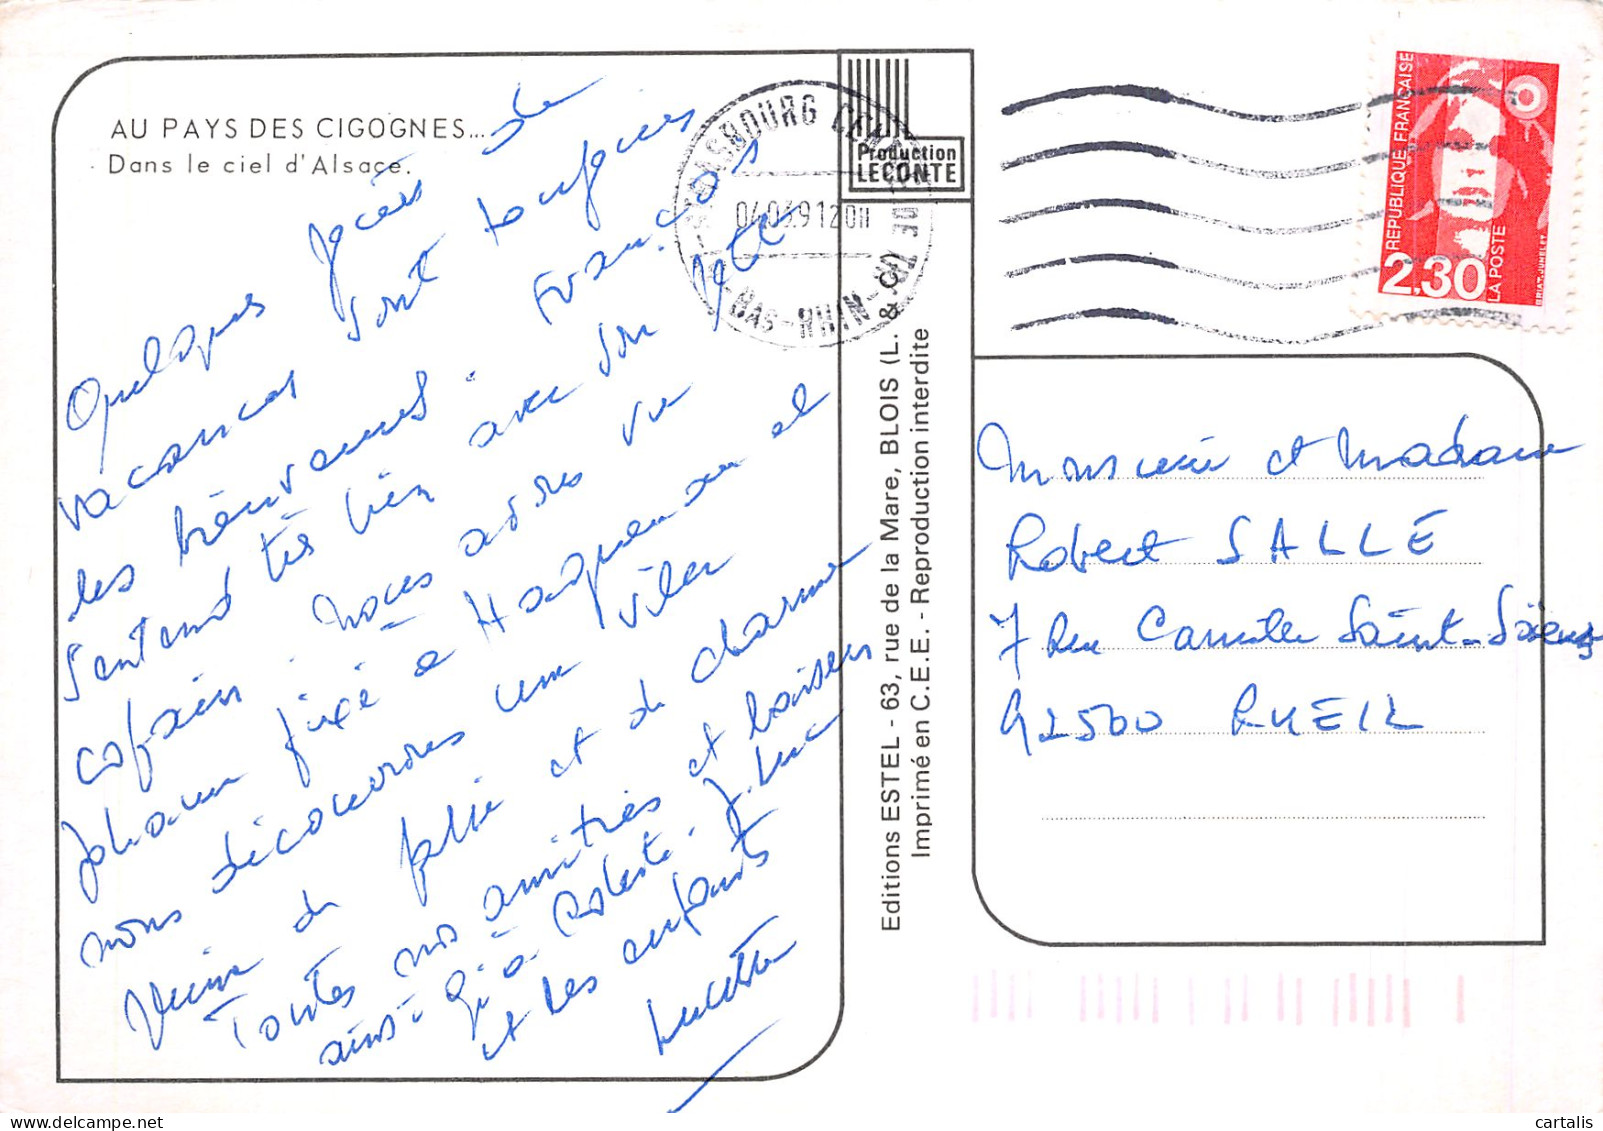 AU PAYS DES CIGOGNES...
Dans le ciel d'Alsace.
Quelques jours de
vacances sont toujours
les bienvenues. François
s'entend très bien avec son
copain. Nous adorons
Johann fixé à Haguenau et
nous découvrons une ville
pleine de et de charme
Toutes nos amitiés et baisers
ainsi qu'à Roberte. J. Luc
et les enfants
Lucette
Production
LECONTE
STRASBOURG CENTRE DE TRI
04.03.91 20H
BAS-RHIN
Editions ESTEL - 63, rue de la Mare, BLOIS (L. & C.)
Imprimé en C.E.E. - Reproduction interdite
REPUBLIQUE FRANÇAISE
2,30
LA POSTE
BRIAT-JUMELET
Monsieur et Madame
Robert SALLÉ
7 Rue Camille Saint-Saëns
92500 RUEIL
cartalis